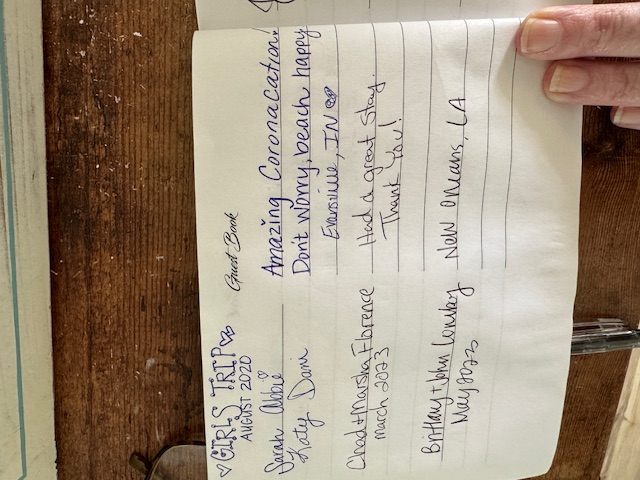 ♡GIRLS TRIP♡
AUGUST 2020
Guest Book
Sarah Abbie
Katy Dani
Amazing Coronacation!
Don't worry, beach happy
Evansville, IN
Chad & Marsha Florence
march 2023
Had a great stay.
Thank You!
Brittany + John
May 2023
New Orleans, LA